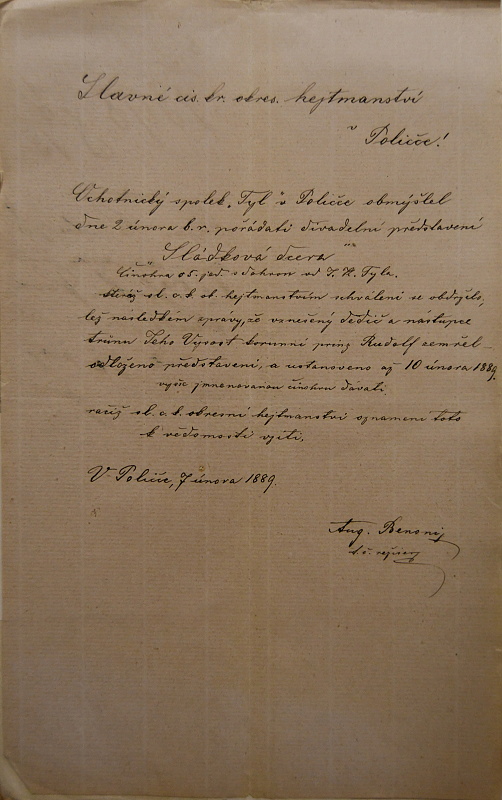 Slavné cís. kr. okres. hejtmanství
v Poličce!
Ochotnický spolek „Tyl" v Poličce obmýšlel
dne 2 února b. r. pořádati divadelní představení
„Sládková dcera"
činohra o 5. jed. od J. K. Tyla.
sl. c. k. ok. hejtmanstvím schválení se obdrželo,
leč následkem zprávy, že vznešený dědic a nástupce
trůnu Jeho Výsost korunní princ Rudolf zemřel
odloženo představení, a ustanoveno až 10 února 1889.
výše jmenovanou činohru dávati.
račiž sl. c. k. okresní hejtmanství oznámení toto
k vědomosti vzíti.
V Poličce, 7 února 1889.
Aug. Benonij
t. č. režisér